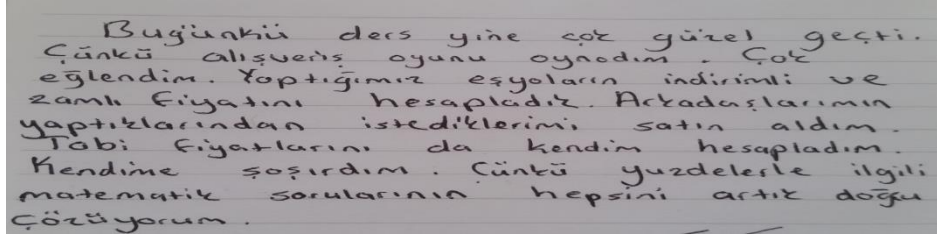 Bugünkü ders yine çok güzel geçti.
Çünkü alışveriş oyunu oynadım. Çok
eğlendim. Yaptığımız eşyaların indirimli ve
zamlı fiyatını hesapladık. Arkadaşlarımın
yaptıklarından istediklerimi satın aldım.
Tabi fiyatlarını da kendim hesapladım.
Kendime şaşırdım. Çünkü yuzdelerle ilgili
matematik sorularının hepsini artık doğru
çözüyorum.